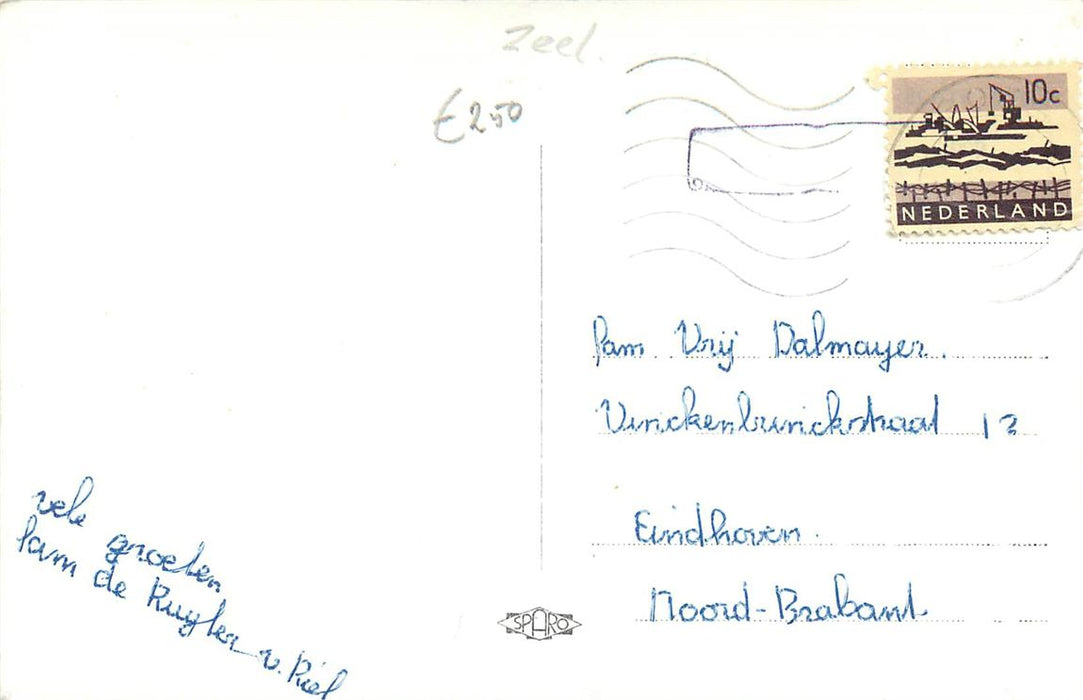 Zeel.
€ 2,50
10c
NEDERLAND
Fam. Vrij Dalmayer.
Vinckenbrinckstraat 12
Eindhoven.
Noord-Brabant
vele groeten
fam de Ruyter v. Riel
SPARO